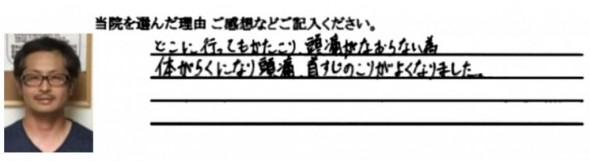 当院を選んだ理由 ご感想などご記入ください。
どこに行ってもかたこり 頭痛がなおらない為
体がらくになり頭痛、首すじのこりがよくなりました。